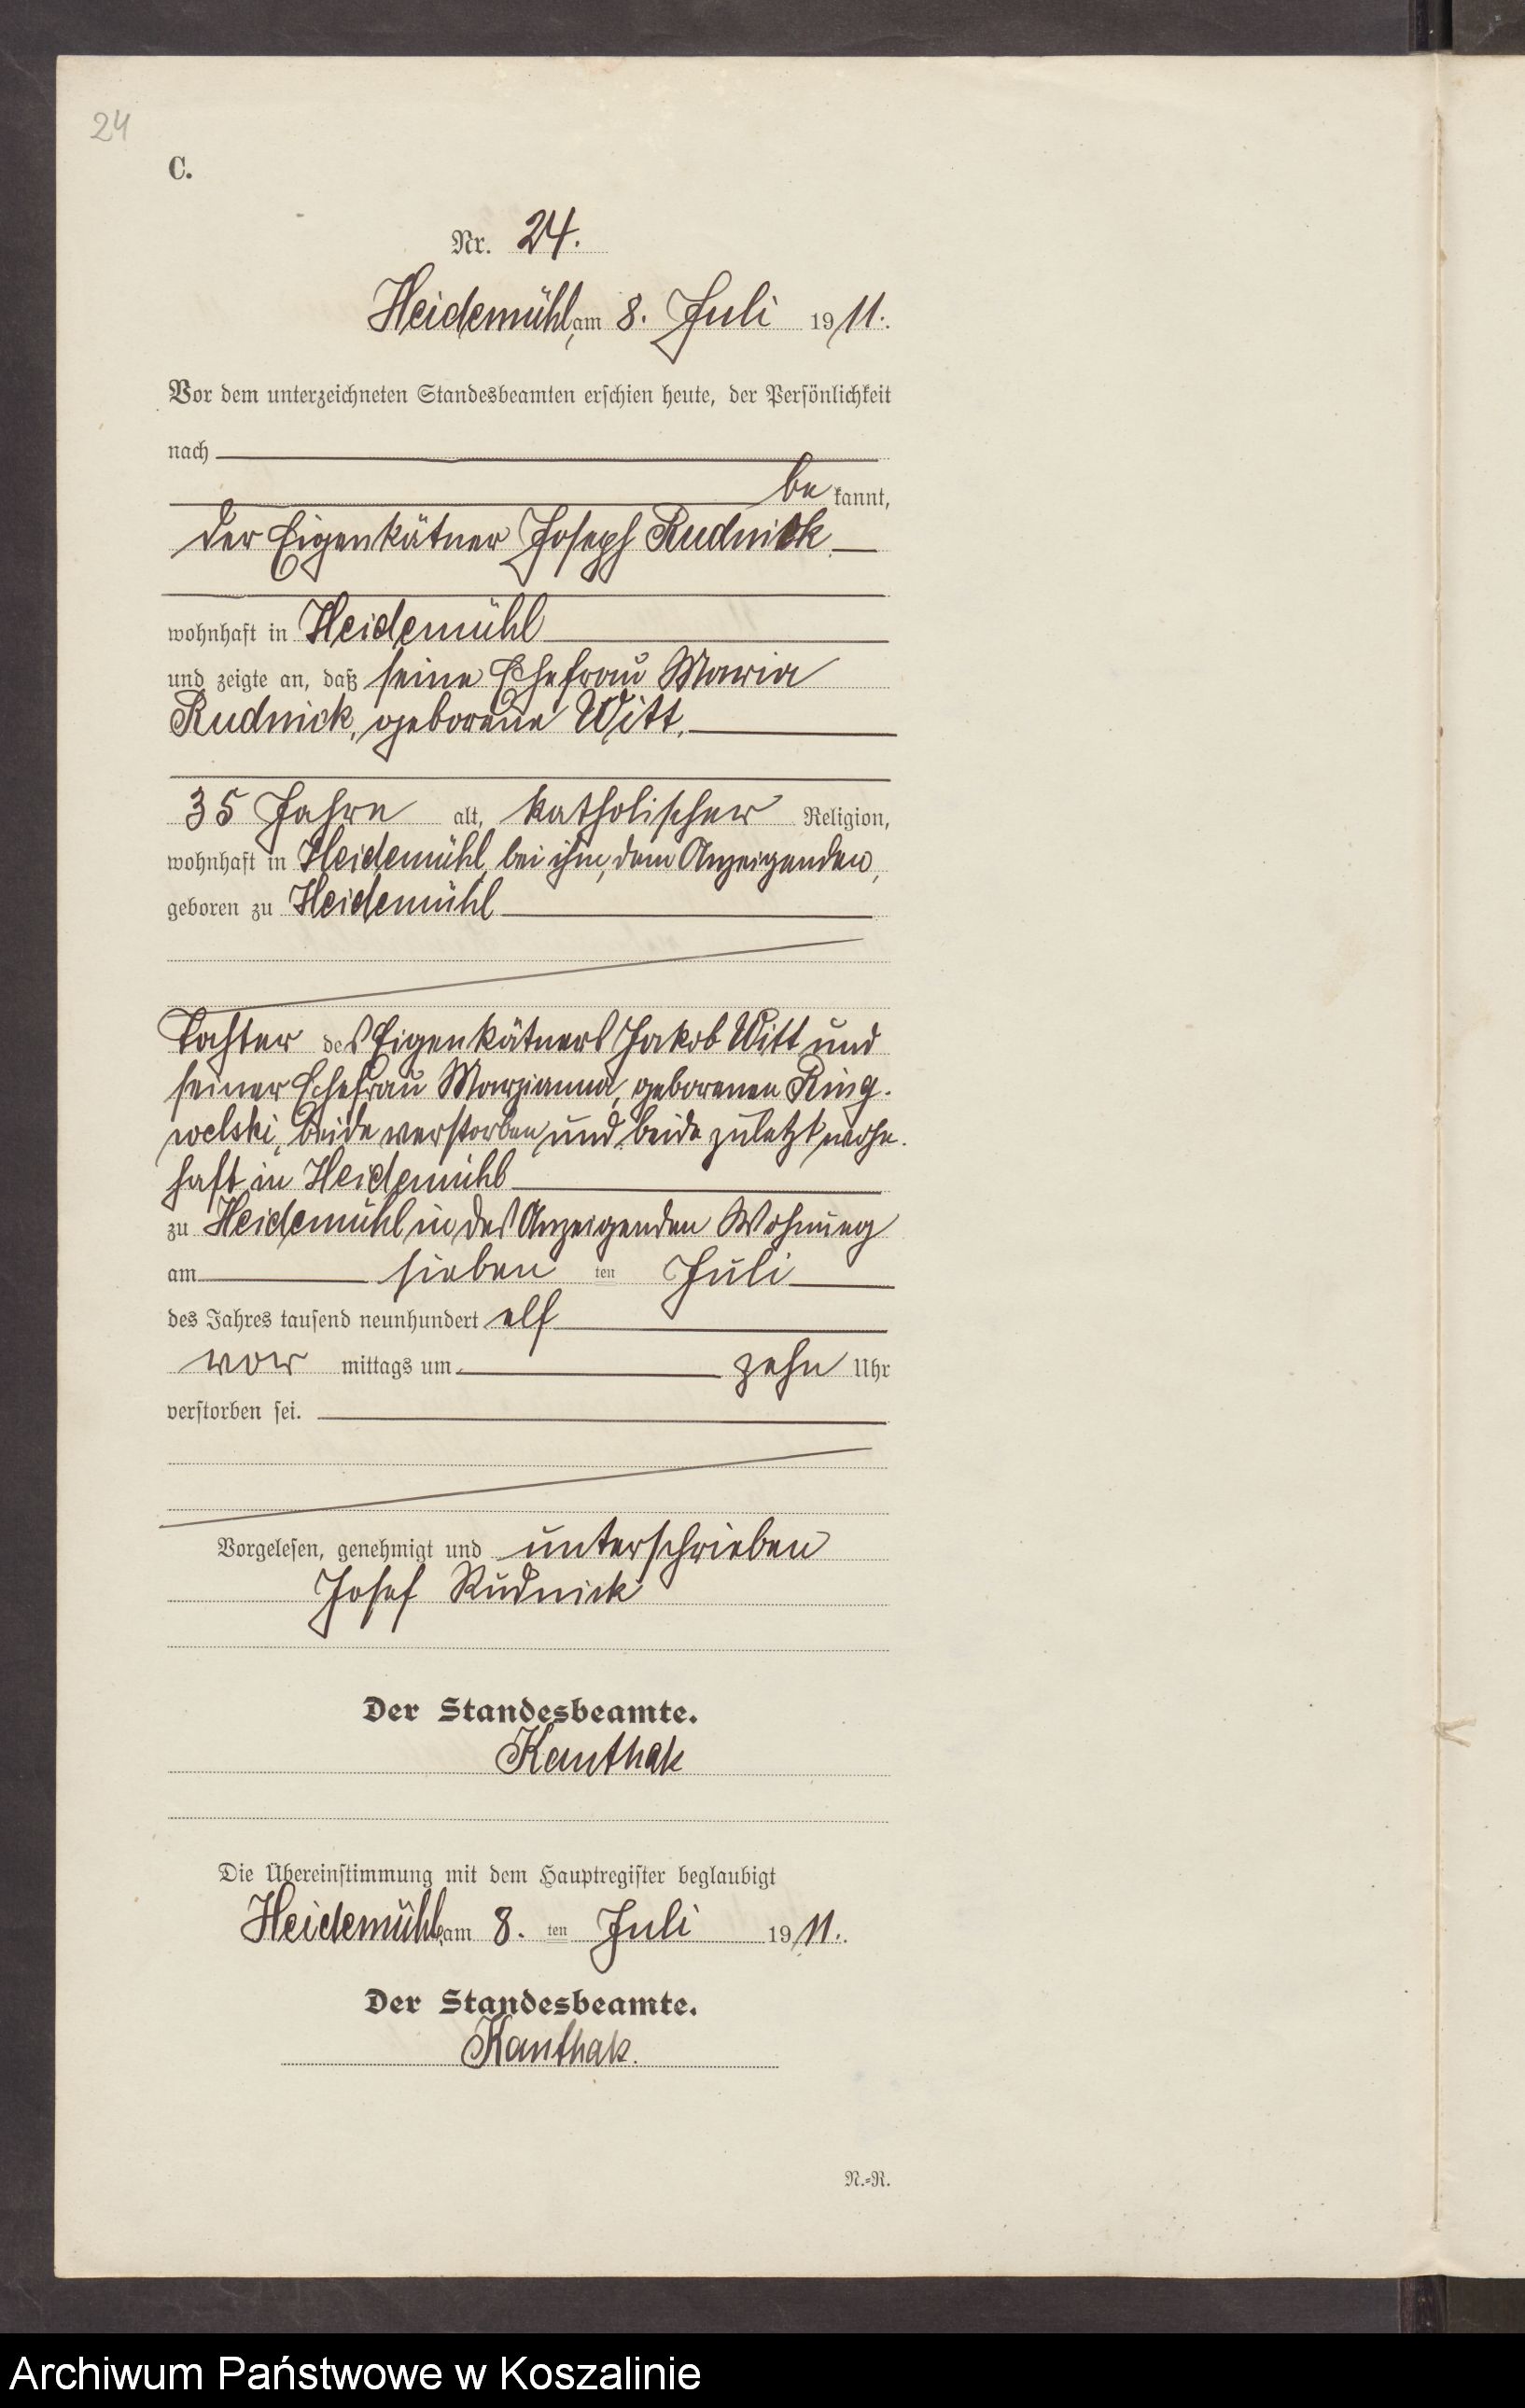 24
C.
Nr. 24.
Heidemühl, am 8. Juli 1911.
Vor dem unterzeichneten Standesbeamten erschien heute, der Persönlichkeit
nach
be kannt,
der Eigenkätner Joseph Rudnick
wohnhaft in Heidemühl
und zeigte an, daß seine Ehefrau Maria
Rudnick, geborene Witt,
35 Jahre alt, katholischer Religion,
wohnhaft in Heidemühl, bei ihm, dem Anzeigenden,
geboren zu Heidemühl
Tochter des Eigenkätners Jakob Witt und
seiner Ehefrau Marzianna, geborenen Ring-
welski, beide verstorben und beide zuletzt wohn-
haft in Heidemühl
zu Heidemühl in des Anzeigenden Wohnung
am sieben ten Juli
des Jahres tausend neunhundert elf
vor mittags um zehn Uhr
verstorben sei.
Vorgelesen, genehmigt und unterschrieben
Josef Rudnick
Der Standesbeamte.
Kanthak
Die Übereinstimmung mit dem Hauptregister beglaubigt
Heidemühl, am 8. ten Juli 1911.
Der Standesbeamte.
Kanthak.
N.=R.
Archiwum Państwowe w Koszalinie